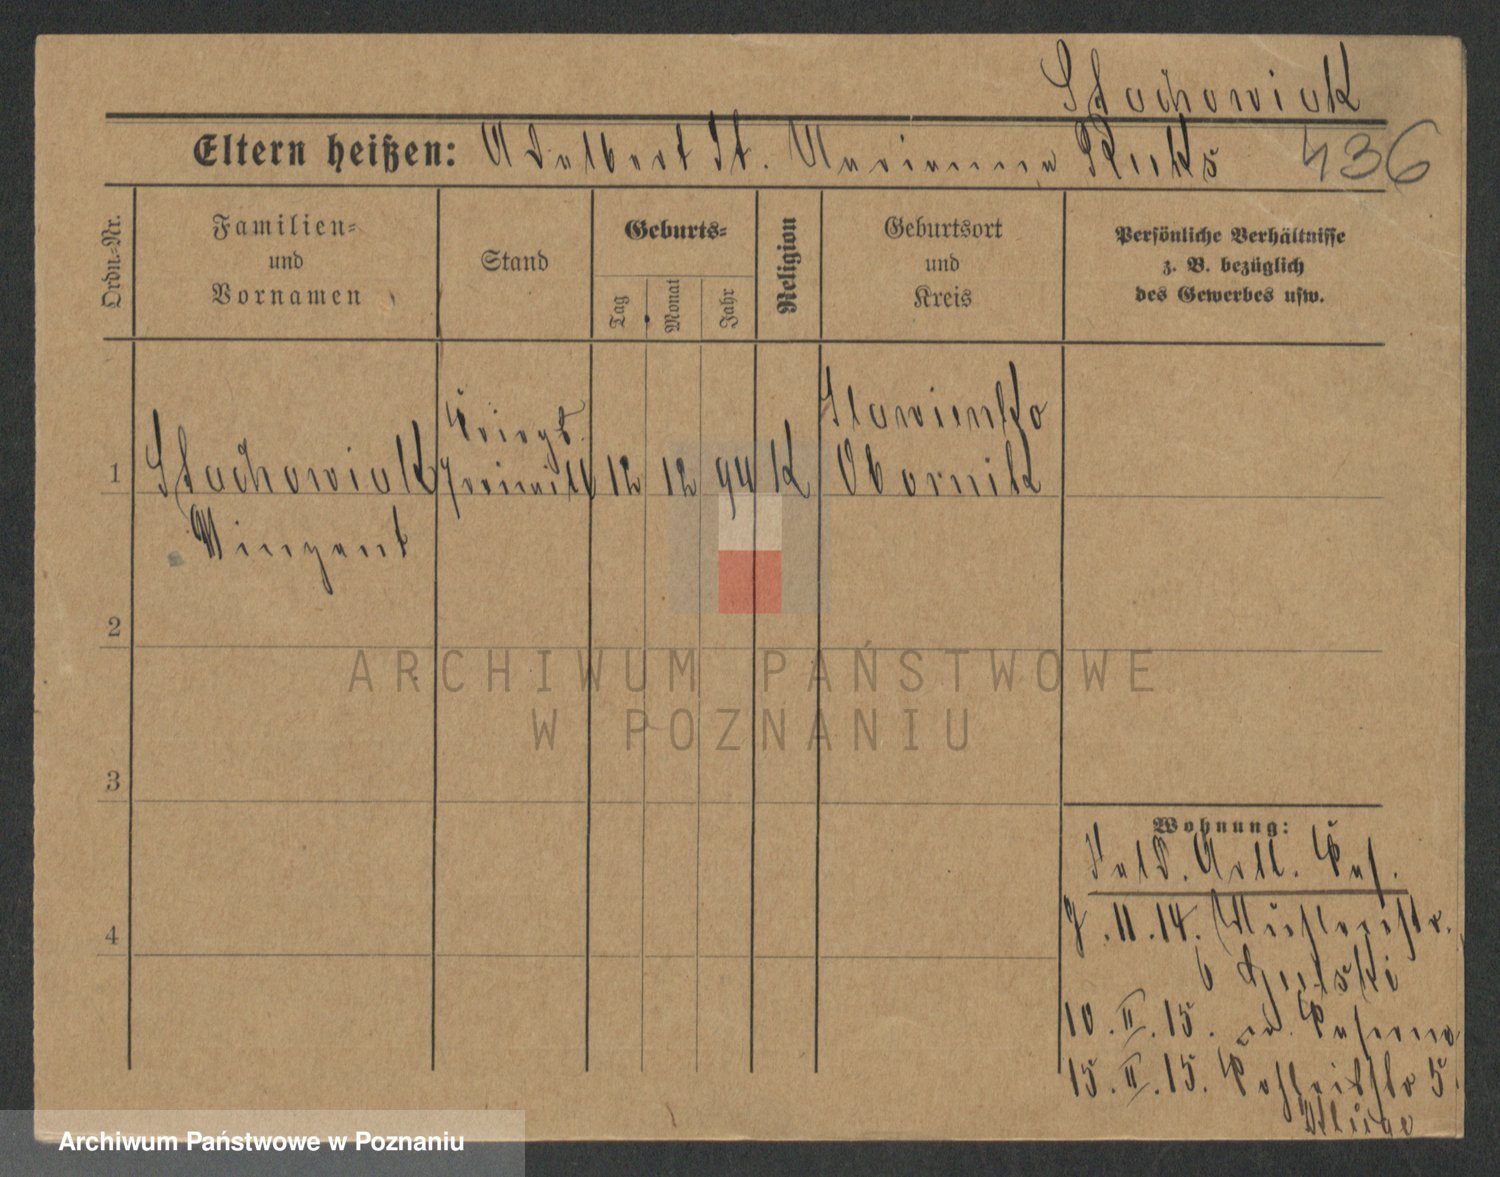 Stachowiak
Eltern heißen: Adalbert St. Marianna
436
Ordn.-Nr.
Familien-
und
Vornamen
Stand
Geburts-
Tag
Monat
Jahr
Religion
Geburtsort
und
Kreis
Persönliche Verhältnisse
z. B. bezüglich
des Gewerbes usw.
1
Stachowiak
Vinzent
Kriegs
freiwill
12
12
94
K
Slawienko
Obornik
2
3
4
ARCHIWUM PAŃSTWOWE
W POZNANIU
Wohnung:
Feld. Artl. Kas.
7.11.14.
6
10.II.15. Kaserne
15.II.15. 5.
Kluge
Archiwum Państwowe w Poznaniu